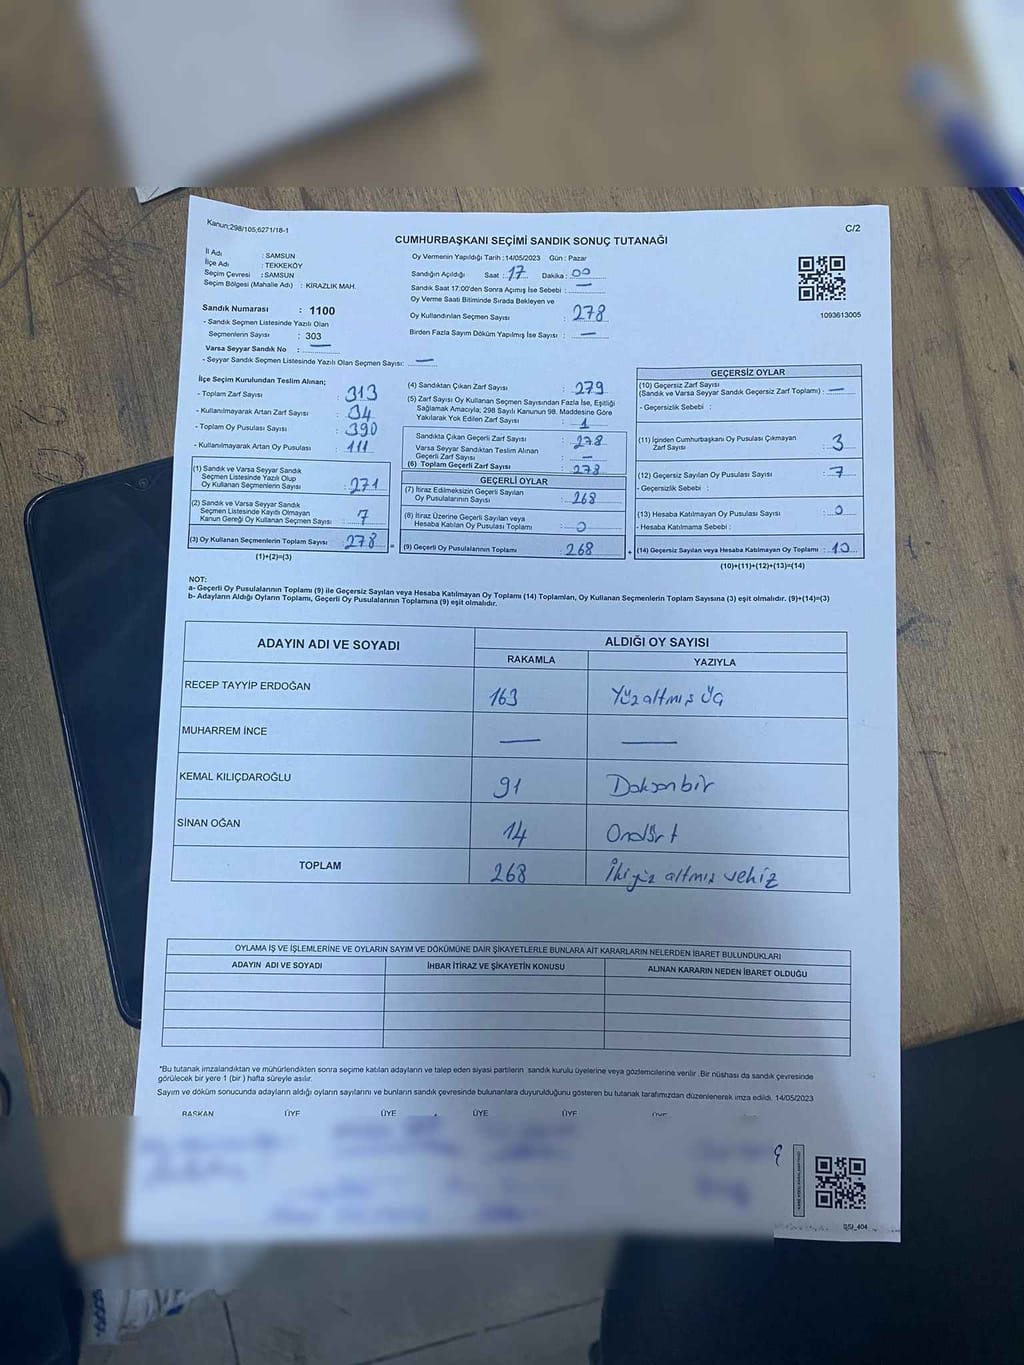 Kanun;298/105,6271/18-1
C/2
CUMHURBAŞKANI SEÇİMİ SANDIK SONUÇ TUTANAĞI
İl Adı : SAMSUN
İlçe Adı : TEKKEKÖY
Seçim Çevresi : SAMSUN
Seçim Bölgesi (Mahalle Adı) : KİRAZLIK MAH.
Sandık Numarası : 1100
- Sandık Seçmen Listesinde Yazılı Olan
Seçmenlerin Sayısı : 303
Varsa Seyyar Sandık No : —
- Seyyar Sandık Seçmen Listesinde Yazılı Olan Seçmen Sayısı: —
Oy Vermenin Yapıldığı Tarih :14/05/2023 Gün : Pazar
Sandığın Açıldığı Saat : 17 Dakika : 00
Sandık Saat 17:00'den Sonra Açılmış İse Sebebi : —
Oy Verme Saati Bitiminde Sırada Bekleyen ve
Oy Kullandırılan Seçmen Sayısı : 278
Birden Fazla Sayım Döküm Yapılmış İse Sayısı : —
1093613005
İlçe Seçim Kurulundan Teslim Alınan;
- Toplam Zarf Sayısı : 313
- Kullanılmayarak Artan Zarf Sayısı : 34
- Toplam Oy Pusulası Sayısı : 390
- Kullanılmayarak Artan Oy Pusulası : 111
(1) Sandık ve Varsa Seyyar Sandık
Seçmen Listesinde Yazılı Olup
Oy Kullanan Seçmenlerin Sayısı : 271
(2) Sandık ve Varsa Seyyar Sandık
Seçmen Listesinde Kayıtlı Olmayan
Kanun Gereği Oy Kullanan Seçmen Sayısı : 7
(3) Oy Kullanan Seçmenlerin Toplam Sayısı : 278
(1)+(2)=(3)
(4) Sandıktan Çıkan Zarf Sayısı : 279
(5) Zarf Sayısı Oy Kullanan Seçmen Sayısından Fazla İse, Eşitliği
Sağlamak Amacıyla; 298 Sayılı Kanunun 98. Maddesine Göre
Yakılarak Yok Edilen Zarf Sayısı : 1
Sandıkta Çıkan Geçerli Zarf Sayısı : 278
Varsa Seyyar Sandıktan Teslim Alınan
Geçerli Zarf Sayısı : —
(6) Toplam Geçerli Zarf Sayısı : 278
GEÇERLİ OYLAR
(7) İtiraz Edilmeksizin Geçerli Sayılan
Oy Pusulalarının Sayısı : 268
(8) İtiraz Üzerine Geçerli Sayılan veya
Hesaba Katılan Oy Pusulası Toplamı : 0
(9) Geçerli Oy Pusulalarının Toplamı : 268
GEÇERSİZ OYLAR
(10) Geçersiz Zarf Sayısı
(Sandık ve Varsa Seyyar Sandık Geçersiz Zarf Toplamı) : —
- Geçersizlik Sebebi :
(11) İçinden Cumhurbaşkanı Oy Pusulası Çıkmayan
Zarf Sayısı : 3
(12) Geçersiz Sayılan Oy Pusulası Sayısı : 7
- Geçersizlik Sebebi :
(13) Hesaba Katılmayan Oy Pusulası Sayısı : 0
- Hesaba Katılmama Sebebi :
(14) Geçersiz Sayılan veya Hesaba Katılmayan Oy Toplamı : 10
(10)+(11)+(12)+(13)=(14)
NOT:
a- Geçerli Oy Pusulalarının Toplamı (9) ile Geçersiz Sayılan veya Hesaba Katılmayan Oy Toplamı (14) Toplamları, Oy Kullanan Seçmenlerin Toplam Sayısına (3) eşit olmalıdır. (9)+(14)=(3)
b- Adayların Aldığı Oyların Toplamı, Geçerli Oy Pusulalarının Toplamına (9) eşit olmalıdır.
ADAYIN ADI VE SOYADI
ALDIĞI OY SAYISI
RAKAMLA YAZIYLA
RECEP TAYYİP ERDOĞAN 163 Yüzaltmış Üç
MUHARREM İNCE — —
KEMAL KILIÇDAROĞLU 91 Doksanbir
SİNAN OĞAN 14 Ondört
TOPLAM 268 İkiyüz altmış
OYLAMA İŞ VE İŞLEMLERİNE VE OYLARIN SAYIM VE DÖKÜMÜNE DAİR ŞİKAYETLERLE BUNLARA AİT KARARLARIN NELERDEN İBARET BULUNDUKLARI
ADAYIN ADI VE SOYADI İHBAR İTİRAZ VE ŞİKAYETİN KONUSU ALINAN KARARIN NEDEN İBARET OLDUĞU
"Bu tutanak imzalandıktan ve mühürlendikten sonra seçime katılan adayların ve talep eden siyasi partilerin sandık kurulu üyelerine veya gözlemcilerine verilir .Bir nüshası da sandık çevresinde
görülecek bir yere 1 (bir ) hafta süreyle asılır.
Sayım ve döküm sonucunda adayların aldığı oyların sayılarını ve bunların sandık çevresinde bulunanlara duyurulduğunu gösteren bu tutanak tarafımızdan düzenlenerek imza edildi. 14/05/2023
BAŞKAN ÜYE ÜYE ÜYE ÜYE ÜYE